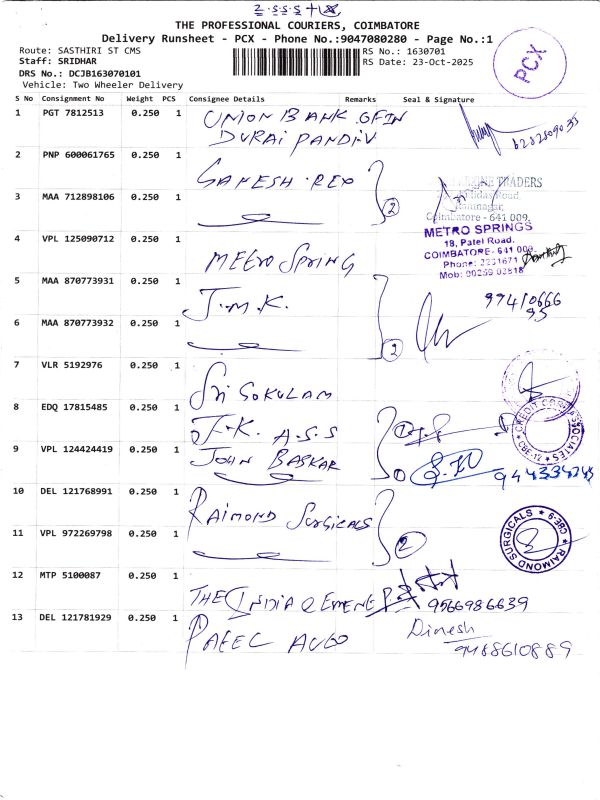 THE PROFESSIONAL COURIERS, COIMBATORE
Delivery Runsheet - PCX - Phone No.:9047080280 - Page No.:1
Route: SASTHIRI ST CMS
RS No.: 1630701
Staff: SRIDHAR
RS Date: 23-Oct-2025
DRS No.: DCJB163070101
Vehicle: Two Wheeler Delivery
PCX
S No Consignment No Weight PCS Consignee Details Remarks Seal & Signature
1 PGT 7812513 0.250 1 UNION BANK OF IN
DURAI PANDIV
2 PNP 600061765 0.250 1 GANESH REX
TRADERS
3 MAA 712898106 0.250 1 2
Coimbatore - 641 009.
4 VPL 125090712 0.250 1 METRO SPRING
METRO SPRINGS
18, Patel Road,
COIMBATORE - 641 009.
5 MAA 870773931 0.250 1 J.M.K.
6 MAA 870773932 0.250 1 2
7 VLR 5192976 0.250 1 Sri GOKULAM
8 EDQ 17815485 0.250 1 J.K. A.S.S 1
9 VPL 124424419 0.250 1 JOHN BASKAR
10 DEL 121768991 0.250 1 RAIMOND SURGICALS
11 VPL 972269798 0.250 1 2
RAIMOND SURGICALS ★ CBE-9 ★
12 MTP 5100087 0.250 1 THE INDIA CEMENE 9566986639
13 DEL 121781929 0.250 1 PATEL AUTO Dinesh
9488610889